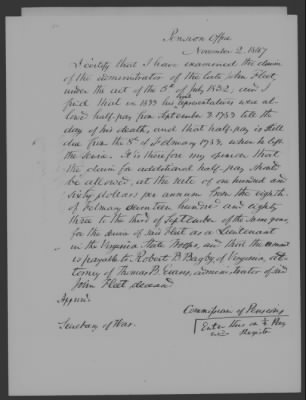 Pension Office
November 2. 1847
I certify that I have examined the claim
of the administrator of the late John Fleet,
under the act of the 5th of July 1832; and I
find that in 1833 his representatives were al-
lowed half-pay from September 3. 1783 till the
day of his death, and that half-pay is still
due from the 8th of February 1783, when he left
the service. It is therefore my opinion that
the claim for additional half-pay should
be allowed, at the rate of one hundred and
sixty dollars per annum from the eighth
of February seventeen hundred and eighty
three to the third of September of the same year,
for the service of said Fleet as a Lieutenant
in the Virginia State troops, and that the amount
is payable to Robert B. Bagby, of Virginia, at-
torney of Thomas B. Evans, administrator of said
John Fleet deceased
Approved
Commissioner of Pensions
Secretary of War.
Enter this on ½ Pay
Register